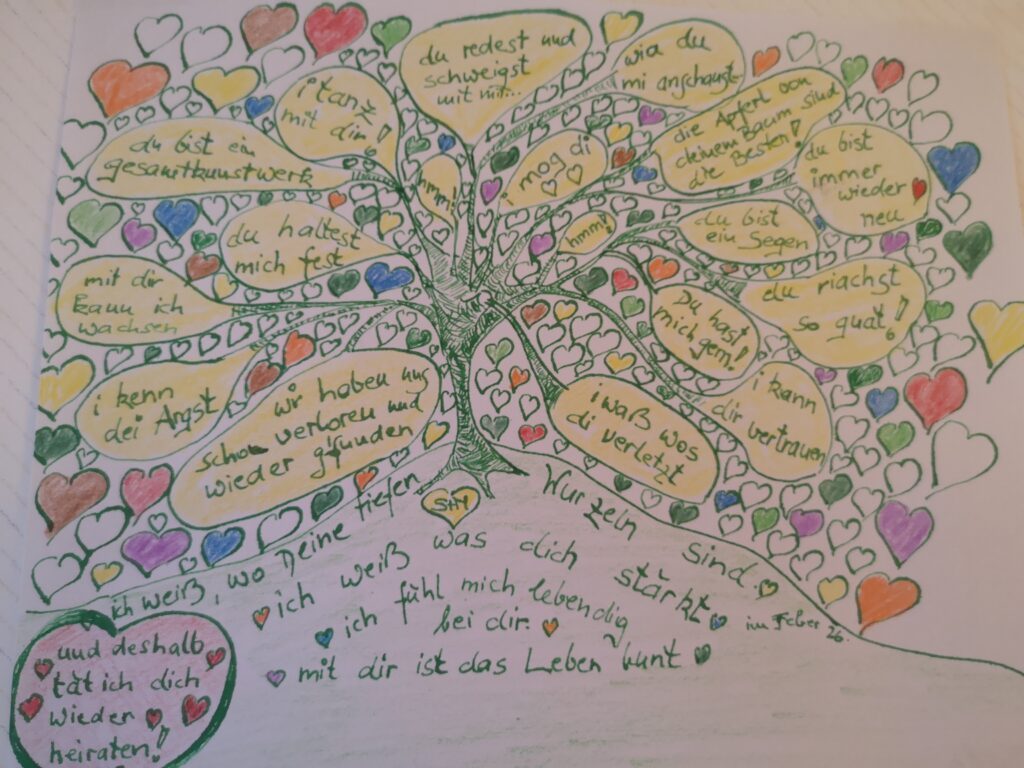 du redest und
schweigst
mit mir...
wia du
mi anschaugst
i tanz
mit dir!
die Äpferl von
deinem Baum sind
die Besten!
du bist ein
gesamtkunstwerk
i mog di
du bist
immer
wieder
neu
du haltest
mich fest
hmm!
du bist
ein Segen
mit dir
kann ich
wachsen
du riachst
so guat!
Du hast
mich gern!
i kenn
dei Angst
wir haben uns
schon verloren und
wieder gfunden
i waß wos
di verletzt
i kann
dir vertrauen
ich weiß, wo Deine tiefen Wurzeln sind
ich weiß was dich stärkt
ich fühl mich lebendig
bei dir.
im Feber 26.
mit dir ist das Leben bunt
und deshalb
tät ich dich
wieder
heiraten!